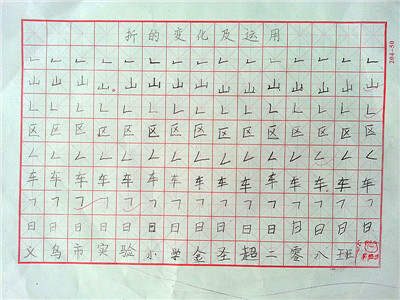 折的变化及运用
㇗㇗㇗㇗㇗㇗㇗㇗㇗㇗㇗㇗㇗㇗
山山山山山山山山山山山山山山
㇗㇗㇗㇗㇗㇗㇗㇗㇗㇗㇗㇗㇗㇗
区区区区区区区区区区区区区区
㇜㇜㇜㇜㇜㇜㇜㇜㇜㇜㇜㇜㇜㇜
车车车车车车车车车车车车车车
㇕㇕㇕㇕㇕㇕㇕㇕㇕㇕㇕㇕㇕㇕
日日日日日日日日日日日日日日
义乌市实验小学金圣超二零八班
204-50